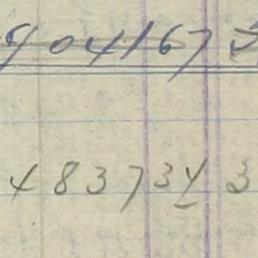 404167
4837343